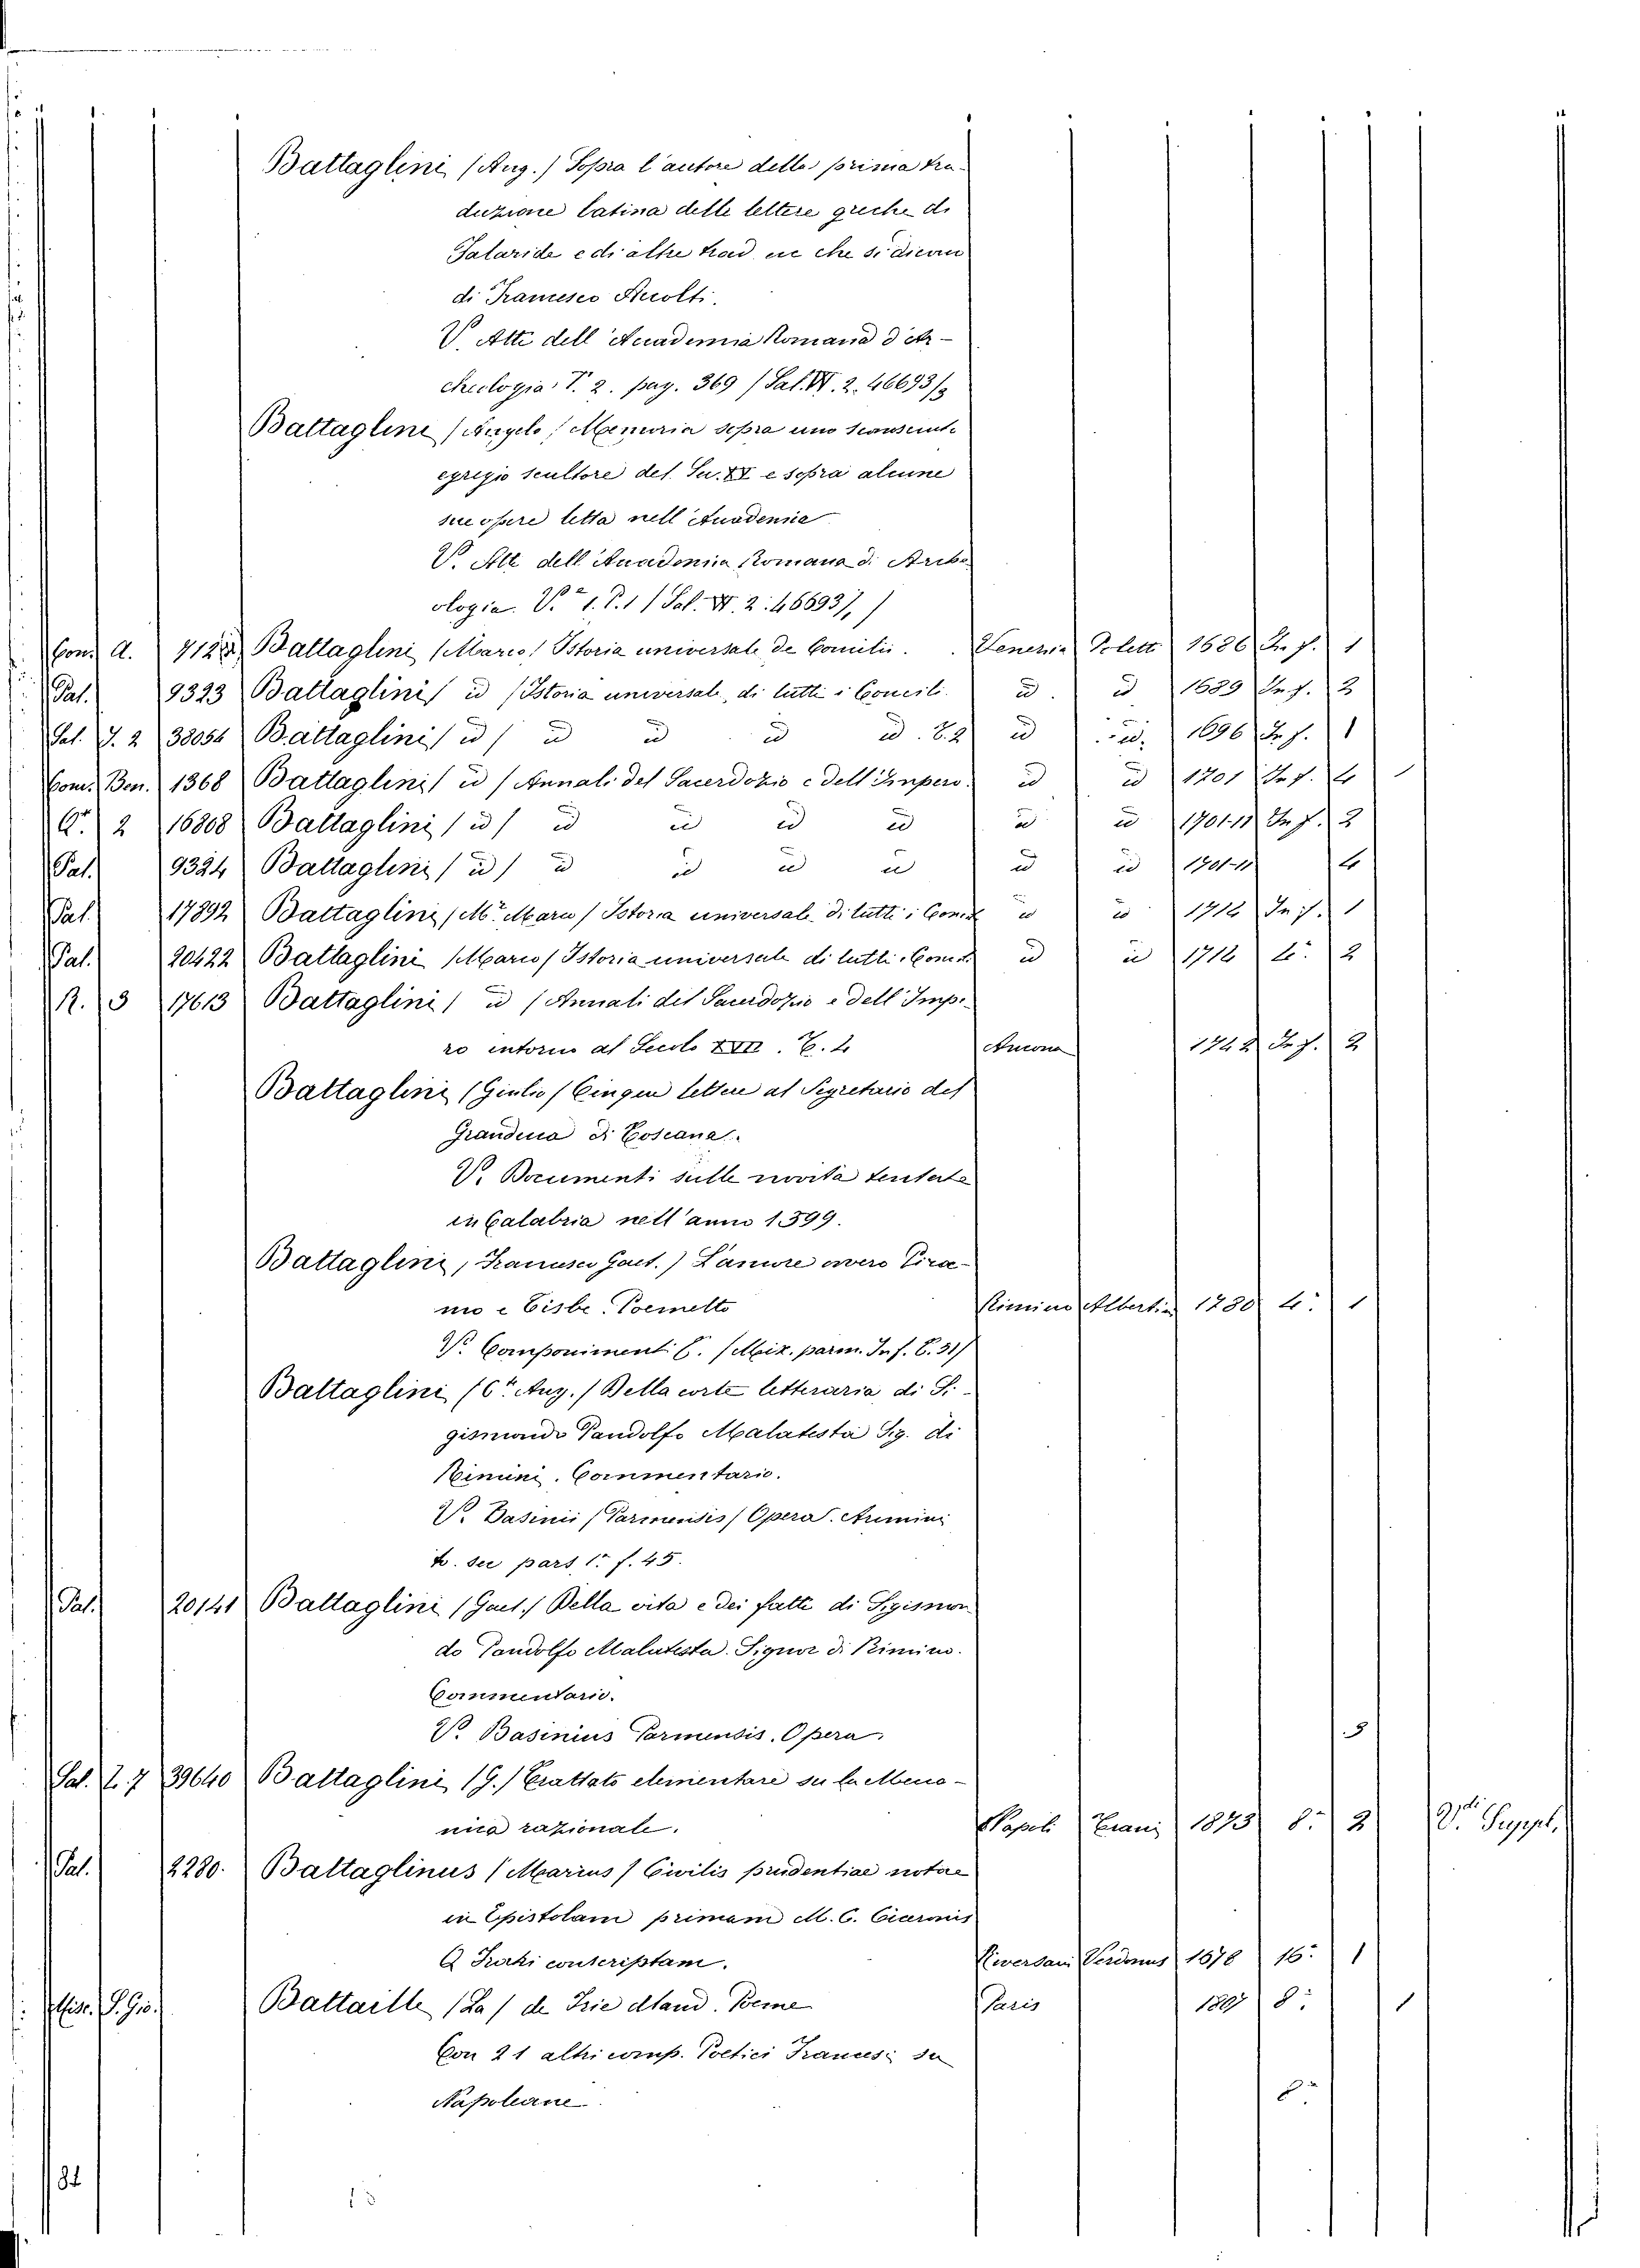 Battaglini (Aug.) Sopra l'autore della prima tra-
duzione latina delle lettere greche di
Falaride e di altre trad. ne che si dicon
di Francesco Accolti.
V. Atti dell'Accademia Romana d'Ar-
cheologia. T. 2. pag. 369 (Sal. VI. 2. 46693/2
Battaglini (Angelo) Memoria sopra uno sconosciuto
egregio scultore del Sec. XV e sopra alcune
sue opere letta nell'Accademia
V. Atti dell'Accademia Romana di Arche
ologia. V. 1. P. 1 (Sal. VI. 2. 46693/1)
Com. A. 4122 Battaglini (Marco) Istoria universale de Concilii. Venezia Poletti 1686 In f. 1
Pal. 9323 Battaglini id (Istoria universale, di tutti i Concili. id. id 1689 In f. 2
Sal. J. 2 38054 Battaglini (id) id id id id. T. 2 id id. 1696 In f. 1
Com. Ben. 1368 Battaglini id (Annali del Sacerdozio e dell'Impero. id id 1701 In f. 4
G. 2 16808 Battaglini (id) id id id id id id 1701-11 In f. 2
Pal. 9324 Battaglini (id) id id id id id id 1701-11 4
Pal. 17892 Battaglini (M. Marco) Istoria universale di tutti i Conci id id 1714 In f. 1
Pal. 20422 Battaglini (Marco) Istoria universale di tutti i Conci id id 1714 4. 2
R. 3 17613 Battaglini) id (Annali del Sacerdozio e dell'Impe
ro intorno al Secolo XVII. T. 4 Ancona 1742 In f. 2
Battaglini (Giulio) Cinque lettere al Segretario del
Granduca di Toscana.
V. Documenti sulle novità tentate
in Calabria nell'anno 1599.
Battaglini, Francesco Gaet.) L'amore ovvero Pira-
mo e Tisbe. Poemetto Rimino Albertin 1780 4. 1
V. Componimenti C. (Miz. parm. In f. C. 31)
Battaglini (Ct. Ang.) Della corte letteraria di Si-
gismondo Pandolfo Malatesta Sig. di
Rimini. Commentario.
V. Basinii (Parmensis) Opera. Arimini
t. sec part. 1. f. 45.
Pal. 20141 Battaglini (Gaet.) Della vita e dei fatti di Sigismon
do Pandolfo Malatesta. Signor di Rimino.
Commentario.
V. Basinius Parmensis. Opera. 5
Sal. Z. 7 39640 Battaglini (G.) Trattato elementare su la Memo-
nica razionale. Napoli Trani 1873 8. 2 V. di Suppl.
Pal. 2280. Battaglinus (Marius) Civilis prudentiae notae
in Epistolam primam M. C. Ciceronis
Q Fratri conscriptam. Verdonus 1678 16. 1
Misc. P. Gio. Battaille (La) de Frie dland. Poeme Paris 1807 8. 1
Con 21 altri comp. Poetici Francesi su
Napoleone 8.
84